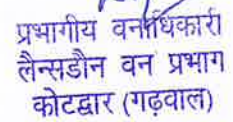 प्रभागीय वनाधिकारी
लैन्सडौन वन प्रभाग
कोटद्वार (गढ़वाल)